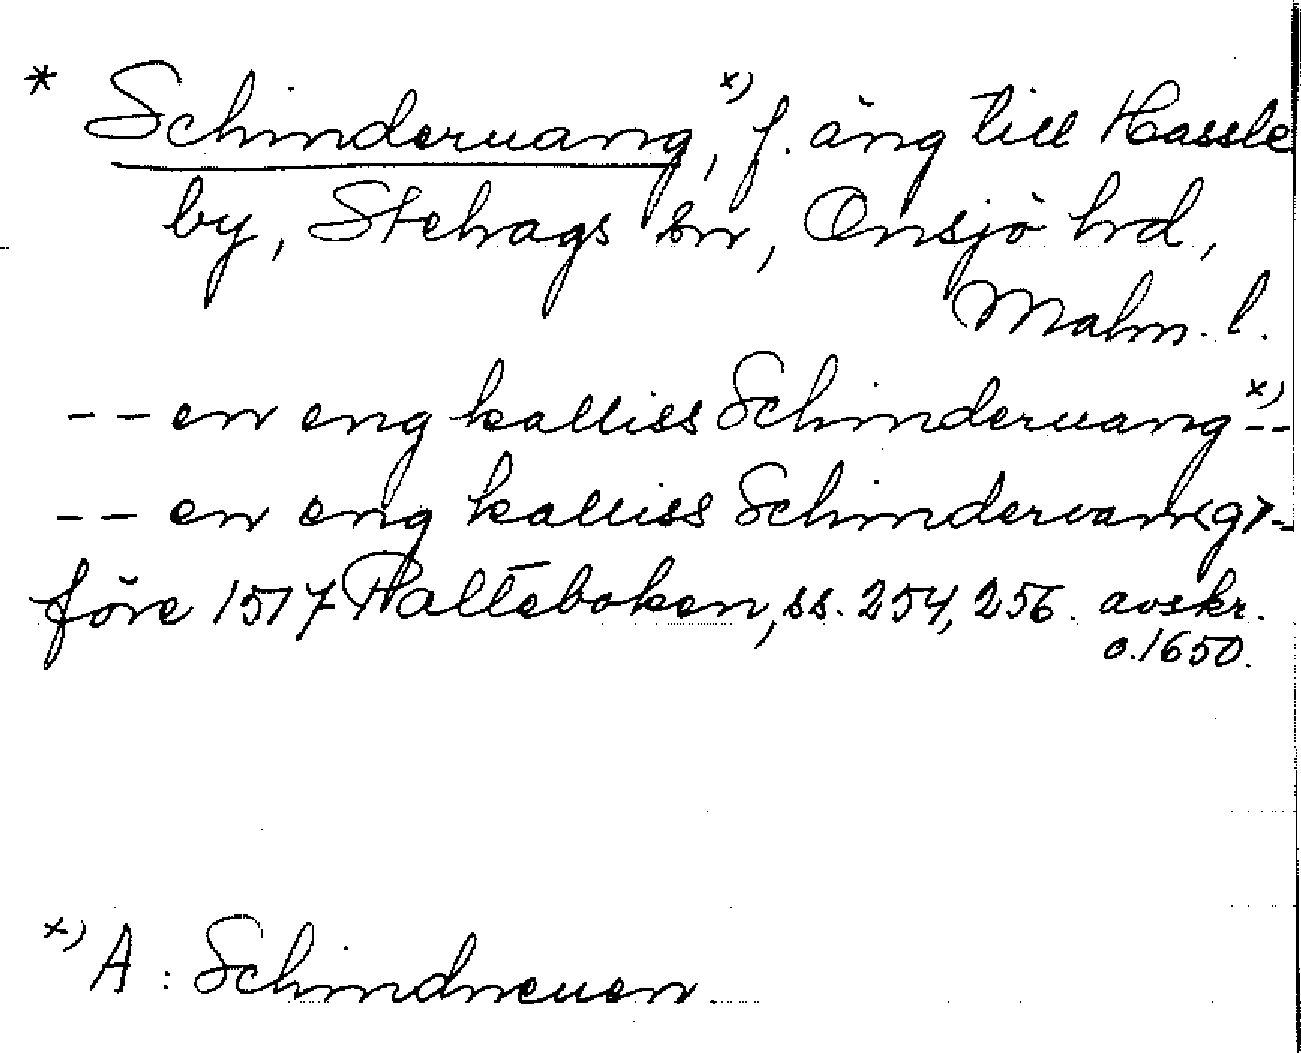 * Schinderuang,ˣ⁾ f. äng till Hassle
by, Stehags sn, Onsjö hd,
Malm. l.
-- en eng kalliss Schinderuangˣ⁾--
-- en eng kalliss Schindervan<g>--
före 1517 Palteboken, ss. 254, 256. avskr.
o. 1650.
ˣ⁾ A: Schindneuen